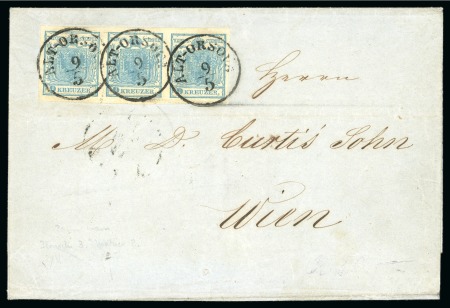 ALT-ORSOVA
9
5
ALT-ORSOVA
9
5
ALT-ORSOVA
9
5
9 KREUZER.
9 KREUZER.
9 KREUZER.
Herrn
M. D. Curtis Sohn
Wien